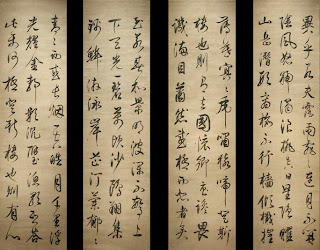 霪雨霏霏連月不開
陰風怒號濁浪排空日星隱曜
山岳潛形商旅不行檣傾楫摧
薄暮冥冥虎嘯猿啼登斯
樓也則有去國懷鄉憂讒畏
譏滿目蕭然感極而悲者矣
至若春和景明波瀾不驚上
下天光一碧萬頃沙鷗翔集
錦鱗游泳岸芷汀蘭郁郁
青青而或長煙一空皓月千里浮
光耀金靜影沉璧漁歌互答
此樂何極登斯樓也則有心